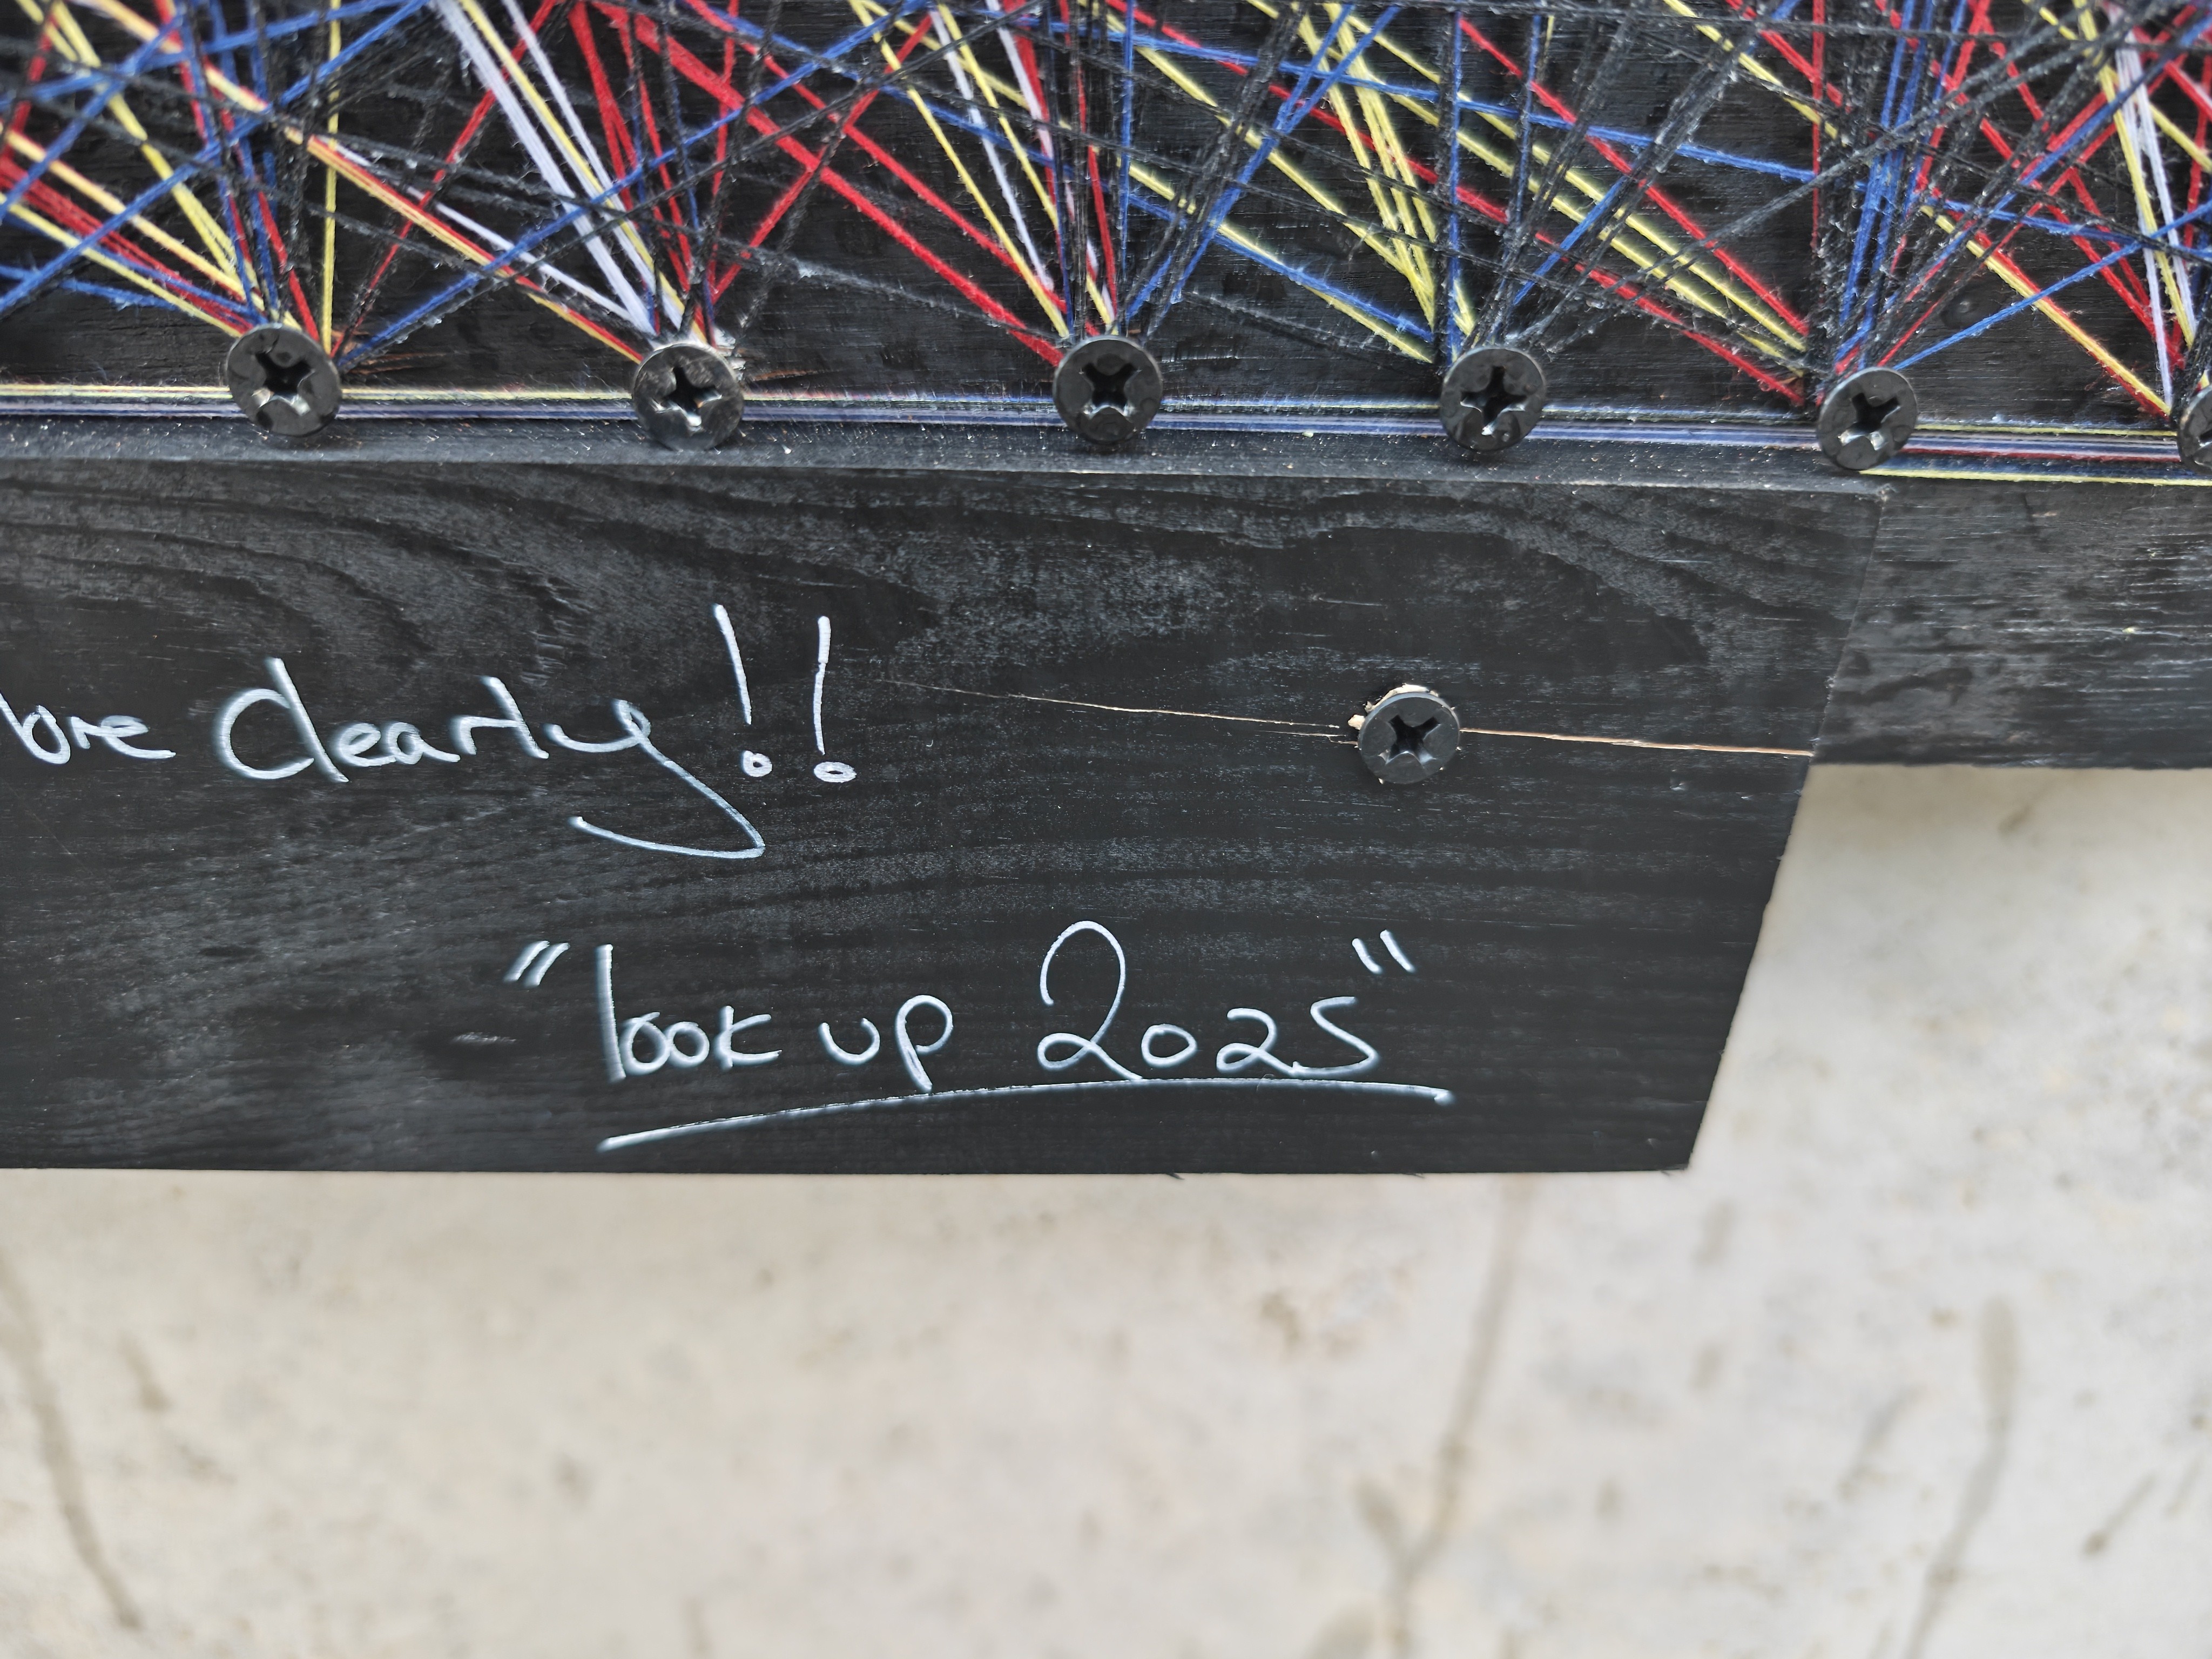 clearly!!
"look up 2025"